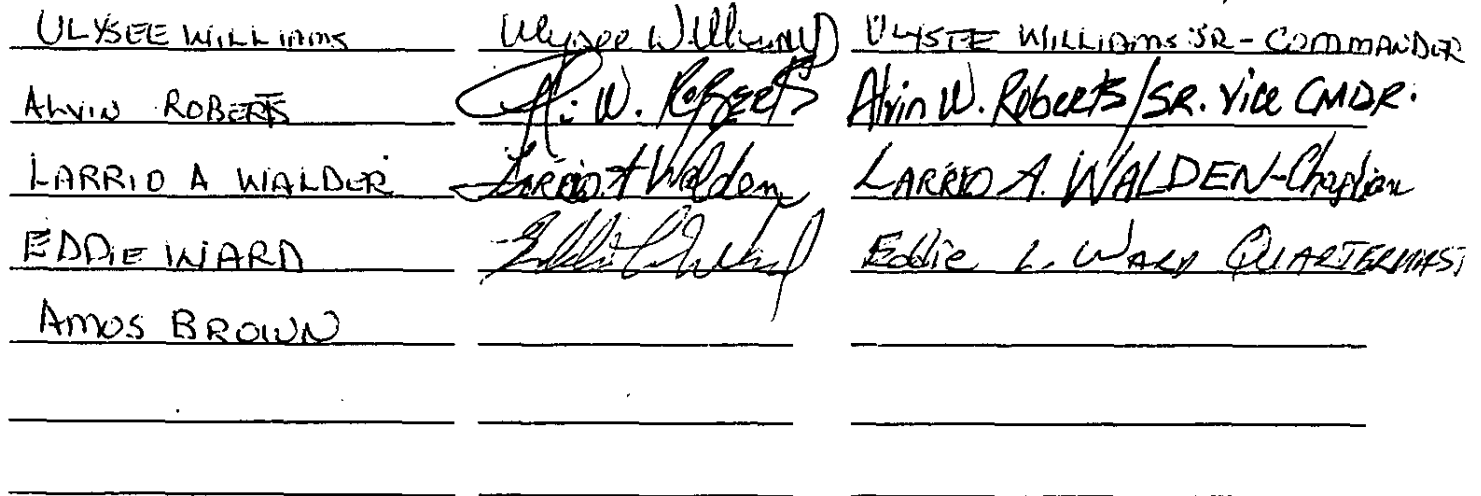 ULYSEE WILLIAMS Ulysee Williams ULYSEE WILLIAMS SR - COMMANDER
ALVIN ROBERTS A. W. Roberts Alvin W. Roberts/SR. Vice CMDR.
LARRIO A WALDER Larrio A Walden LARRIO A. WALDEN-Chaplian
EDDIE WARD Eddie L. Ward Eddie L. WARD QUARTERMAST
AMOS BROWN